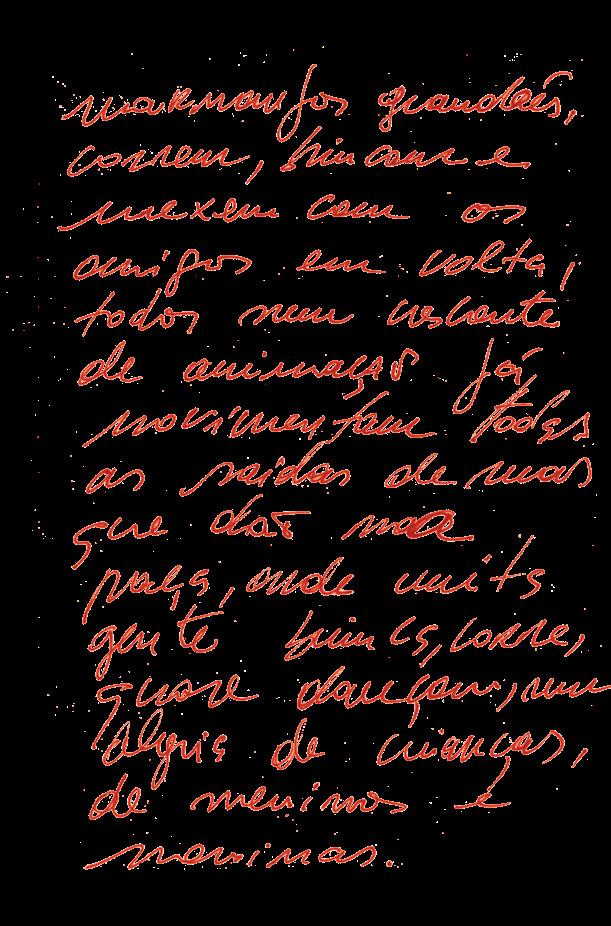 marmanjos grandões,
correm, brincam e
mexem com os
amigos em volta,
todos num
de animação já
movimentam todas
as saídas de ruas
que dão na
praça, onde muita
gente brinca, corre,
quase dançam, num
alegria de crianças,
de meninos e
meninas.